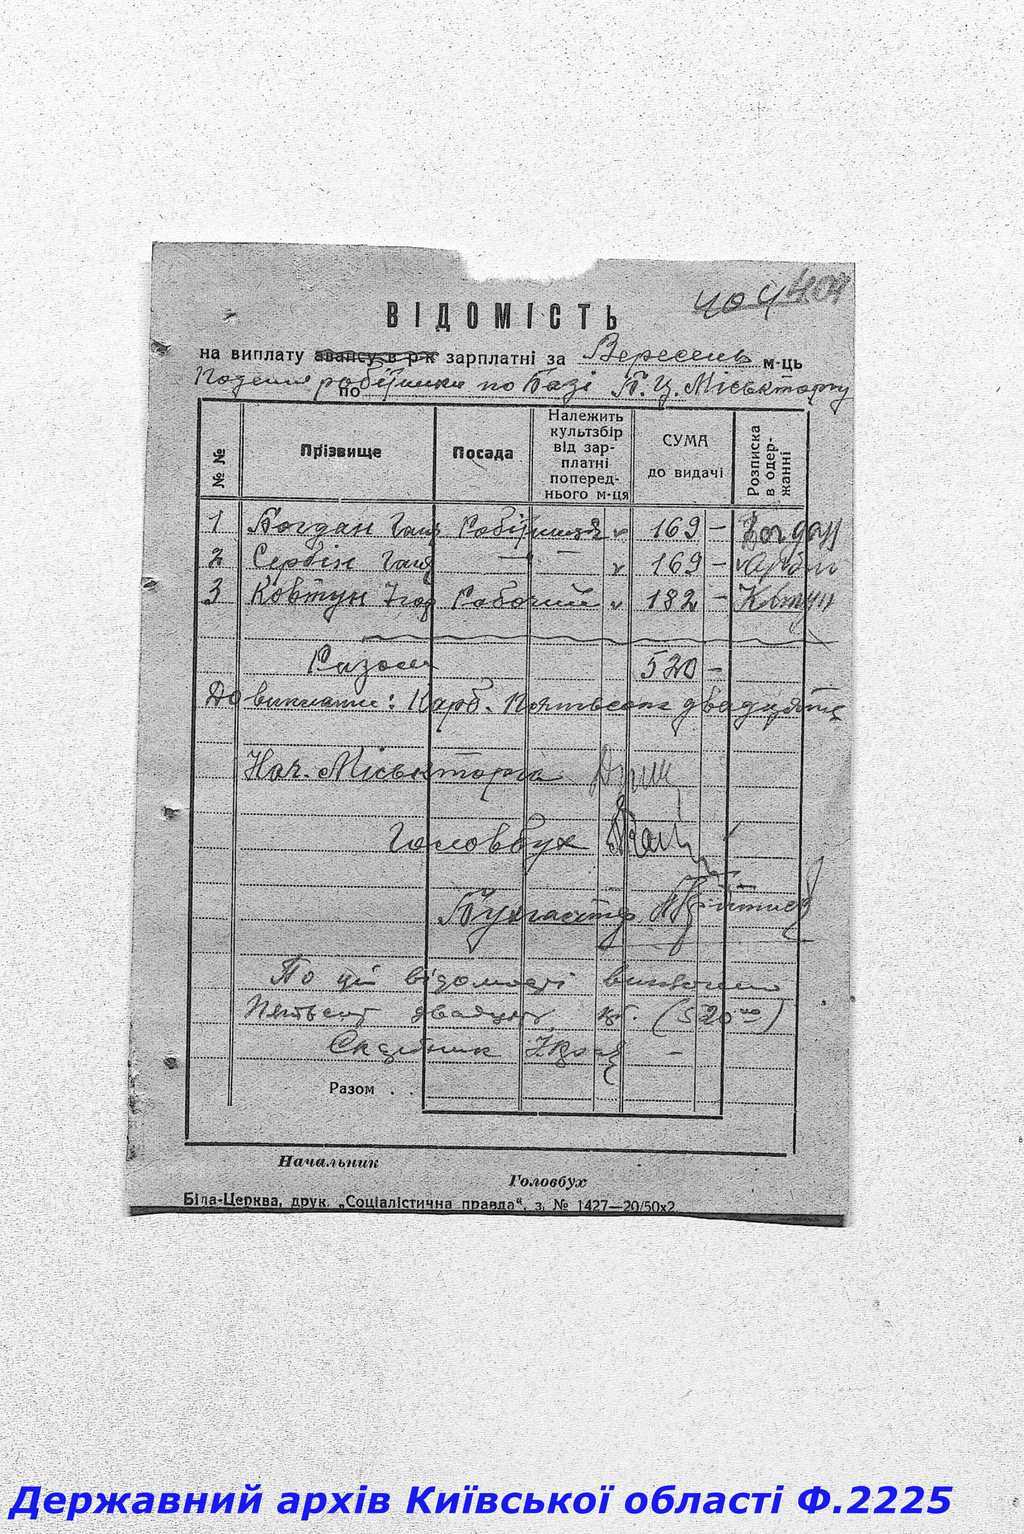 404 404
ВІДОМІСТЬ
на виплату авансу в р-к зарплатні за Вересень м-ць
по Поденні робітники по Базі Б. Ц. Міськторгу
№ № Прізвище Посада Належить культзбір від зарплатні попереднього м-ця СУМА до видачі Розписка в одержанні
1 Богдан Ганя Робітниця v 169 – Богдан
2 Сербін Ганя — — v 169 –
3 Ковтун Ігор Робочий v 182 – Ковтун
Разом 520 –
До виплати: Карб. Пятьсот двадцять
Нач. Міськторга
Головбух
Бухгалтер
По цій відомості виплачено
Пятьсот двадцять кр. (520 00)
Скарбник
Разом . .
Начальник
Головбух
Біла-Церква, друк. „Соціалістична правда“. з. № 1427—20/50х2
Державний архів Київської області Ф.2225